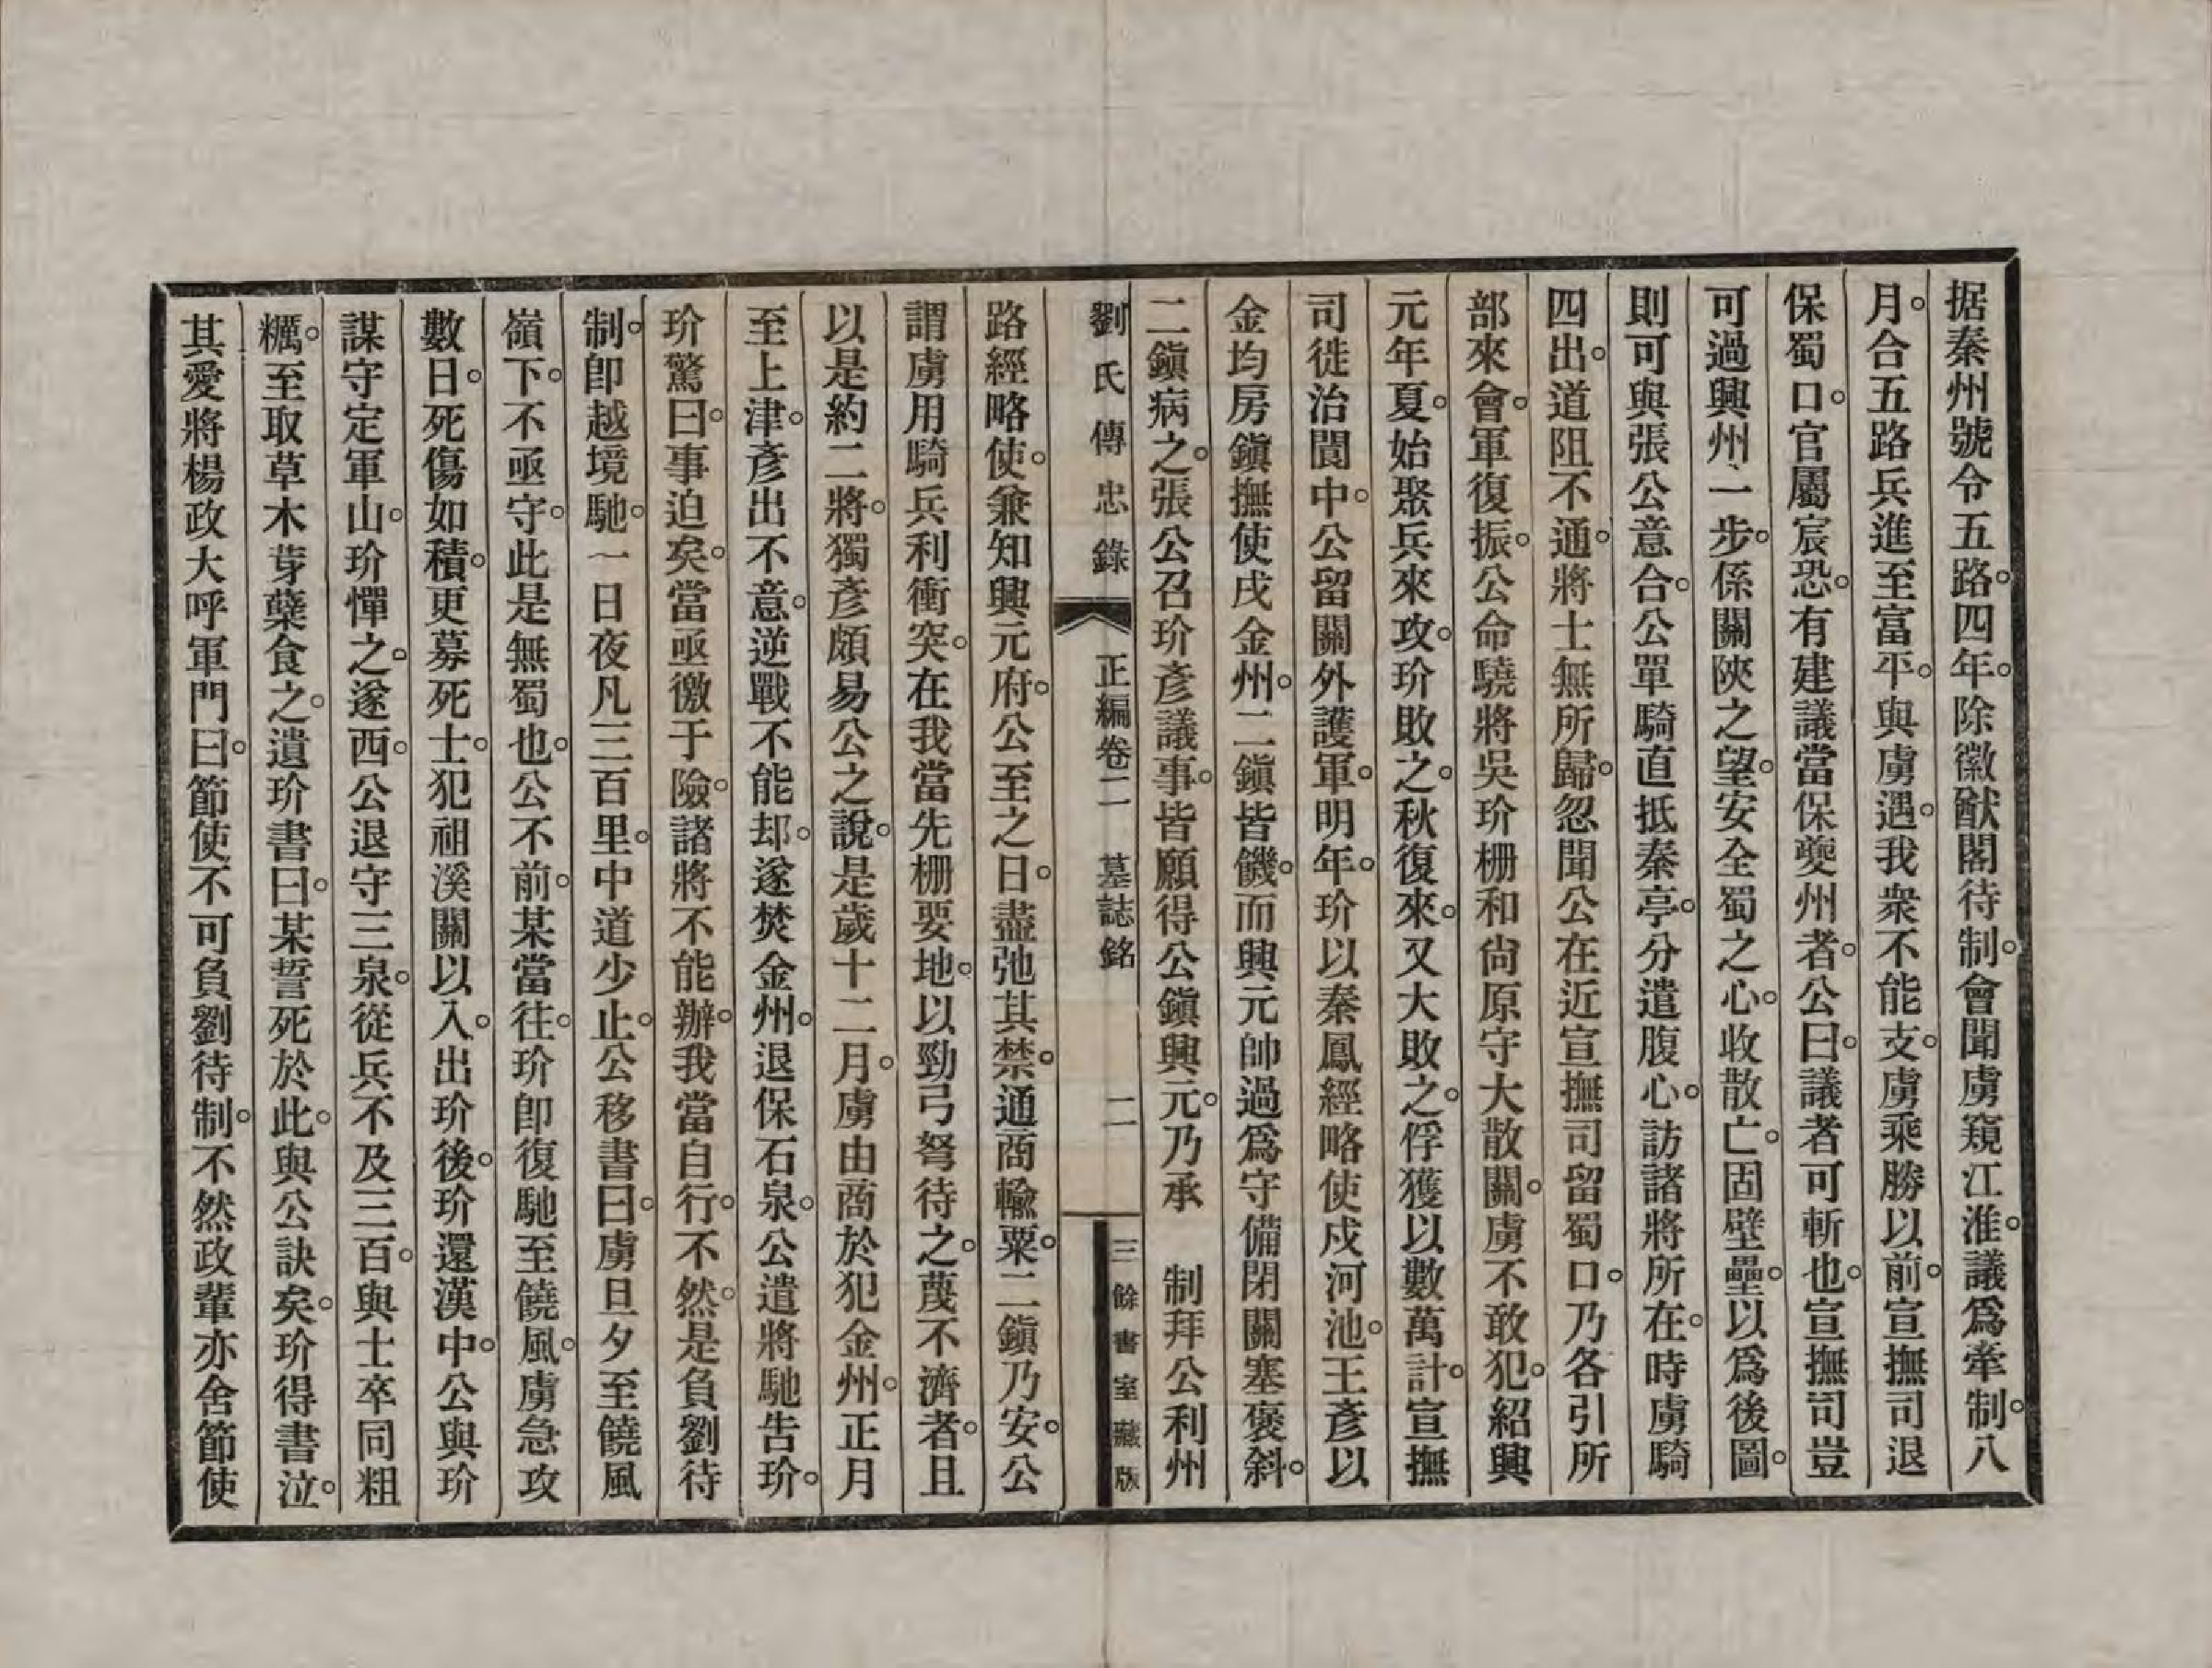 据秦州號令五路。四年。除徽猷閣待制。會聞虜窺江淮。議爲牽制。八
月。合五路兵進至富平。與虜遇。我衆不能支。虜乘勝以前。宣撫司退
保蜀口。官屬宸恐。有建議當保夔州者。公曰。議者可斬也。宣撫司豈
可過興州一步。係關陝之望。安全蜀之心。收散亡。固壁壘。以爲後圖。
則可與張公意合。公單騎直抵秦亭。分遣腹心。訪諸將所在。時虜騎
四出。道阻不通。將士無所歸。忽聞公在近宣撫司留蜀口。乃各引所
部來會。軍復振。公命驍將吳玠栅和尙原守大散關。虜不敢犯。紹興
元年夏。始聚兵來攻。玠敗之。秋復來。又大敗之。俘獲以數萬計。宣撫
司徙治閬中。公留關外護軍。明年。玠以秦鳳經略使戍河池。王彥以
金均房鎭撫使戍金州。二鎭皆饑。而興元帥過爲守備閉關塞褒斜。
二鎭病之。張公召玠彥議事。皆願得公鎭興元。乃承 制拜公利州
劉氏傳忠錄 正編卷二 墓誌銘 二 三餘書室藏版
路經略使。兼知興元府。公至之日。盡弛其禁。通商輸粟。二鎭乃安。公
謂虜用騎兵利衝突。在我當先栅要地。以勁弓弩待之。蔑不濟者。且
以是約二將。獨彥頗易公之說。是歲十二月。虜由商於犯金州。正月
至上津。彥出不意。逆戰不能却。遂焚金州。退保石泉。公遣將馳告玠。
玠驚曰。事迫矣。當亟徼于險。諸將不能辦。我當自行。不然。是負劉待
制。卽越境馳。一日夜凡三百里。中道少止。公移書曰。虜旦夕至饒風
嶺下。不亟守。此是無蜀也。公不前。某當往。玠卽復馳至饒風。虜急攻
數日。死傷如積。更募死士。犯祖溪關以入。出玠後。玠還漢中。公與玠
謀守定軍山。玠憚之。遂西。公退守三泉。從兵不及三百。與士卒同粗
糲。至取草木芽蘖食之。遺玠書曰。某誓死於此。與公訣矣。玠得書泣。
其愛將楊政大呼軍門曰。節使不可負劉待制。不然政輩亦舍節使